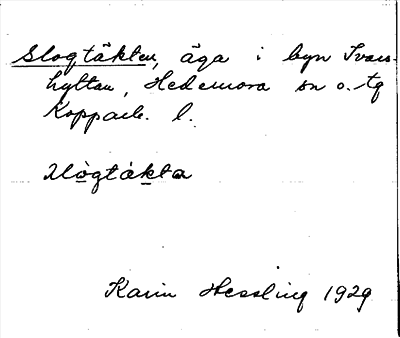 Slogtäkten, äga i byn Ivars-
hyttan, Hedemora sn o. tg
Kopparb. l.
Karin Hessling 1929